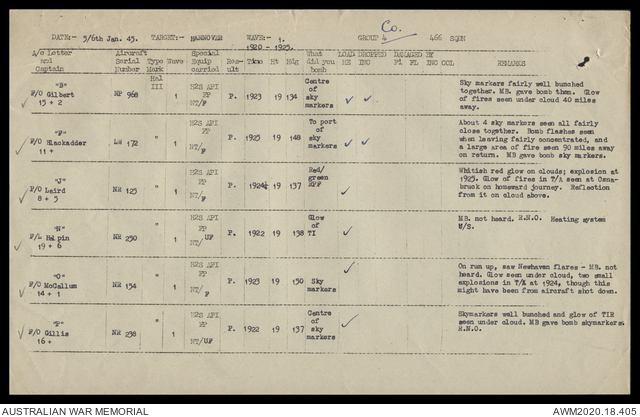 Co.
DATE:- 5/6th Jan. 45. TARGET:- HANNOVER WAVE:- 1. GROUP 4 466 SQDN
1920 - 1925.
A/c Letter and Captain Aircraft Serial Number Type Mark Wave Special Equip carried Res- ult Time Ht Hdg What did you bomb LOAD DROPPED HE INC DAMAGED BY Fi FL INC COL REMARKS
Hal III
"B" P/O Gilbert 15 + 2 NP 968 1 H2S API FP NT/F P. 1923 19 134 Centre of sky markers ✓ ✓
Sky markers fairly well bunched
together. MB. gave bomb them. Glow
of fires seen under cloud 40 miles
away.
F/O Blackadder 11 + 172 " 1 H2S API FP NT/F P. 1925 19 148 To port of sky markers ✓ ✓
About 4 sky markers seen all fairly
close together. Bomb flashes seen
when leaving fairly concentrated, and
a large area of fire seen 90 miles away
on return. MB gave bomb sky markers.
"J" F/O Laird 8 + 5 NR 125 " 1 H2S API FP NT/F P. 1924½ 19 137 Red/ green ✓
Whitish red glow on clouds; explosion at
1925. Glow of fires in T/A seen at Osna-
bruck on homeward journey. Reflection
from it on cloud above.
"N" F/L Halpin 19 + 6 NR 250 " 1 H2S API FP NT/UF P. 1922 19 138 Glow of TI ✓
MB. not heard. R.N.O. Heating system
U/S.
"O" F/O McCallum 14 + 1 NR 154 " 1 H2S API FP NT/F P. 1923 19 150 Sky markers ✓
On run up, saw Newhaven flares - MB. not
heard. Glow seen under cloud, two small
explosions in T/A at 1924, though this
might have been from aircraft shot down.
F/O Gillis 16 + NR 238 " 1 H2S API FP NT/UF P. 1922 19 137 Centre of sky markers ✓
Skymarkers well bunched and glow of TIR
seen under cloud. MB gave bomb skymarkers.
R.N.O.
AUSTRALIAN WAR MEMORIAL AWM2020.18.405